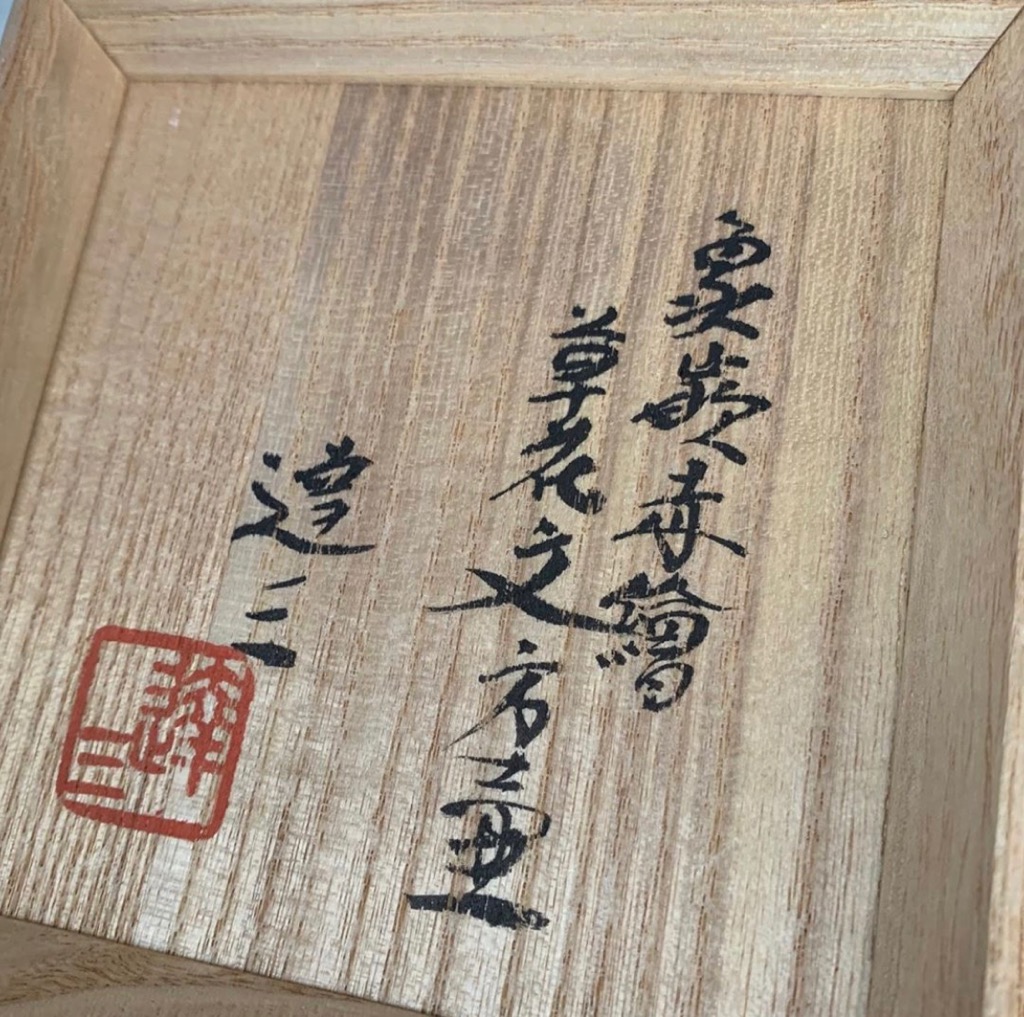 象嵌赤繪
草花文方壺
達三
達三